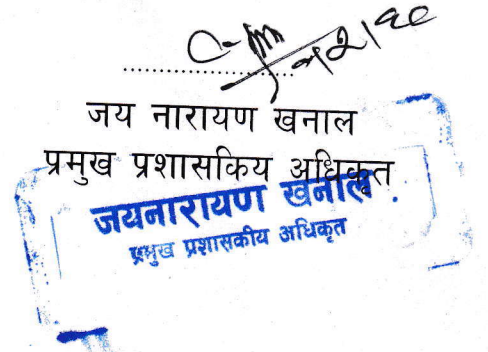 जय नारायण खनाल
प्रमुख प्रशासकिय अधिकृत
जयनारायण खनाल
प्रमुख प्रशासकीय अधिकृत